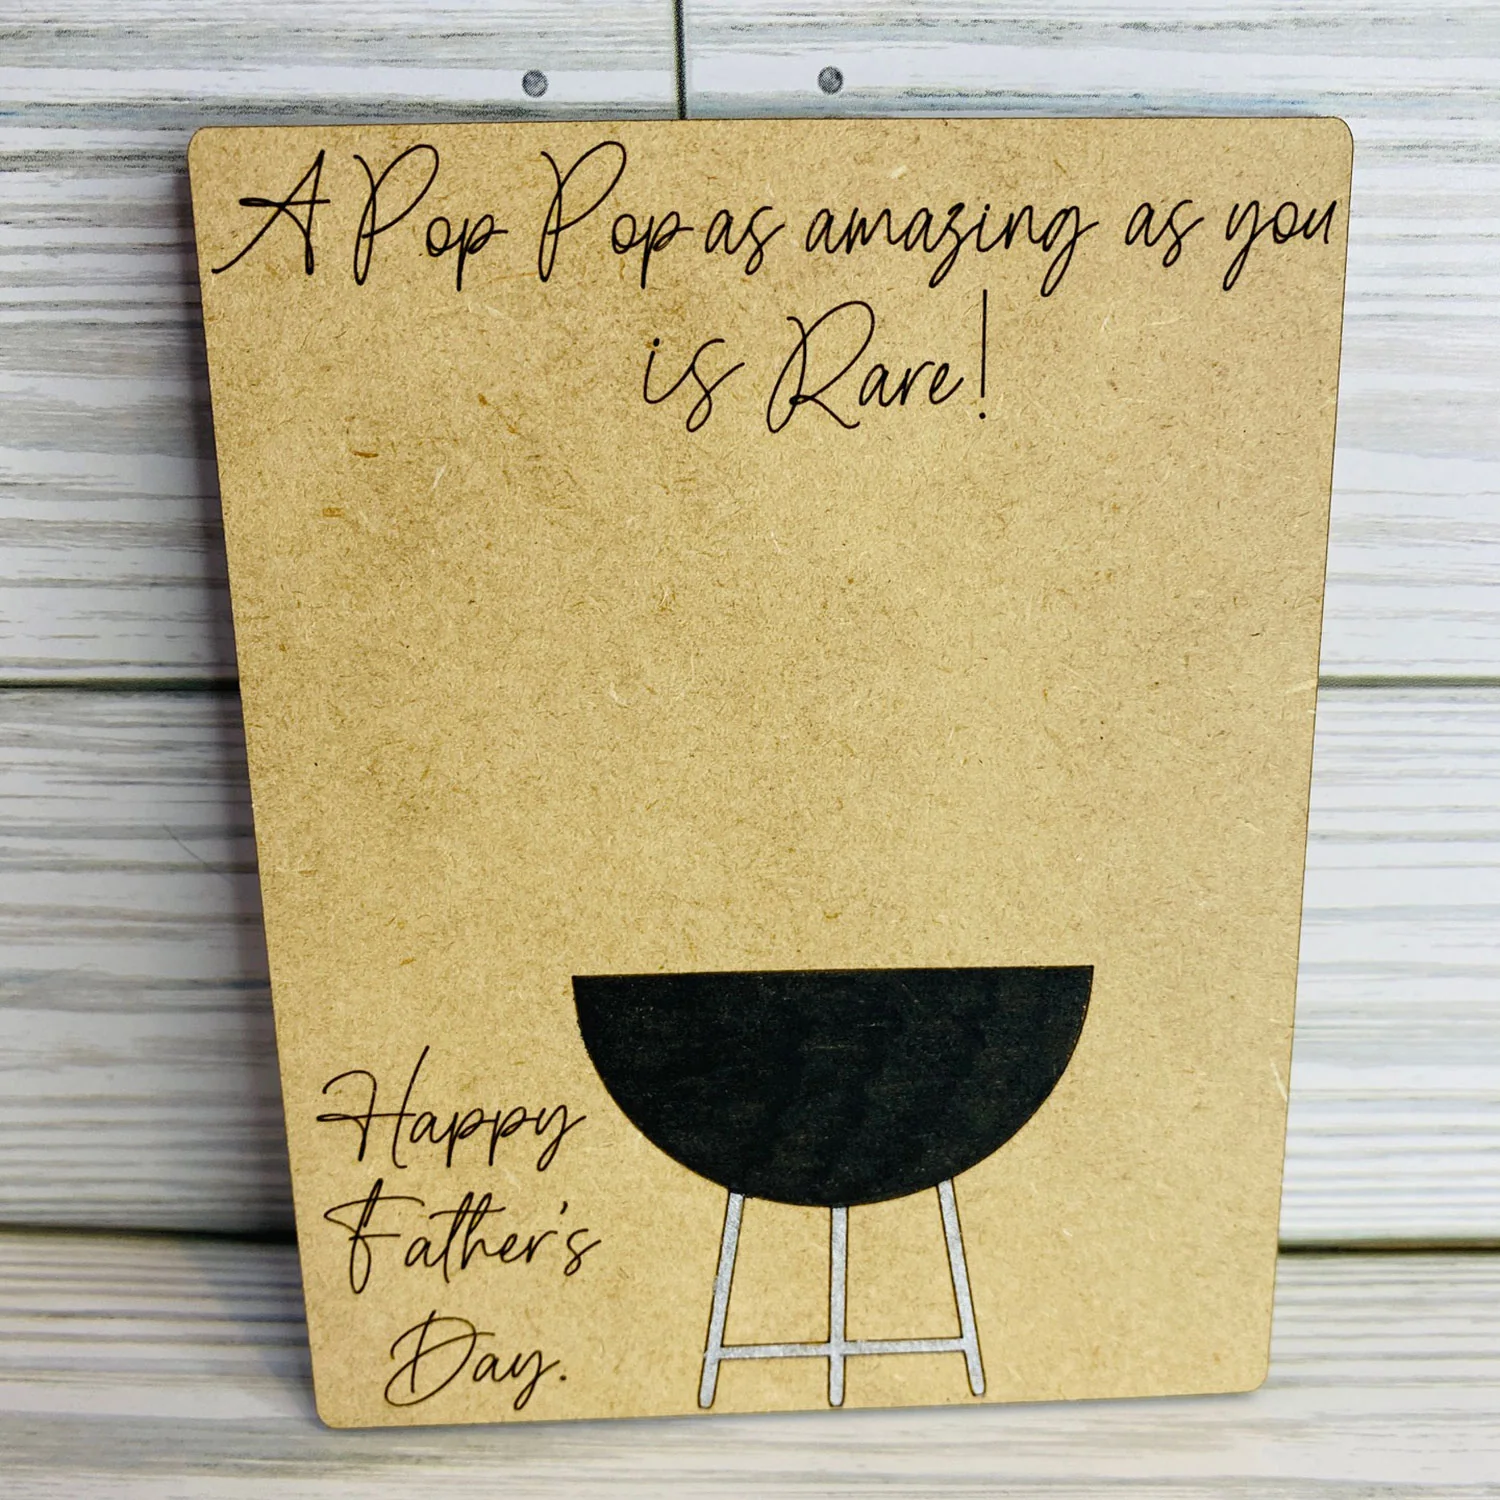 A Pop Pop as amazing as you
is Rare!
Happy
Father's
Day.